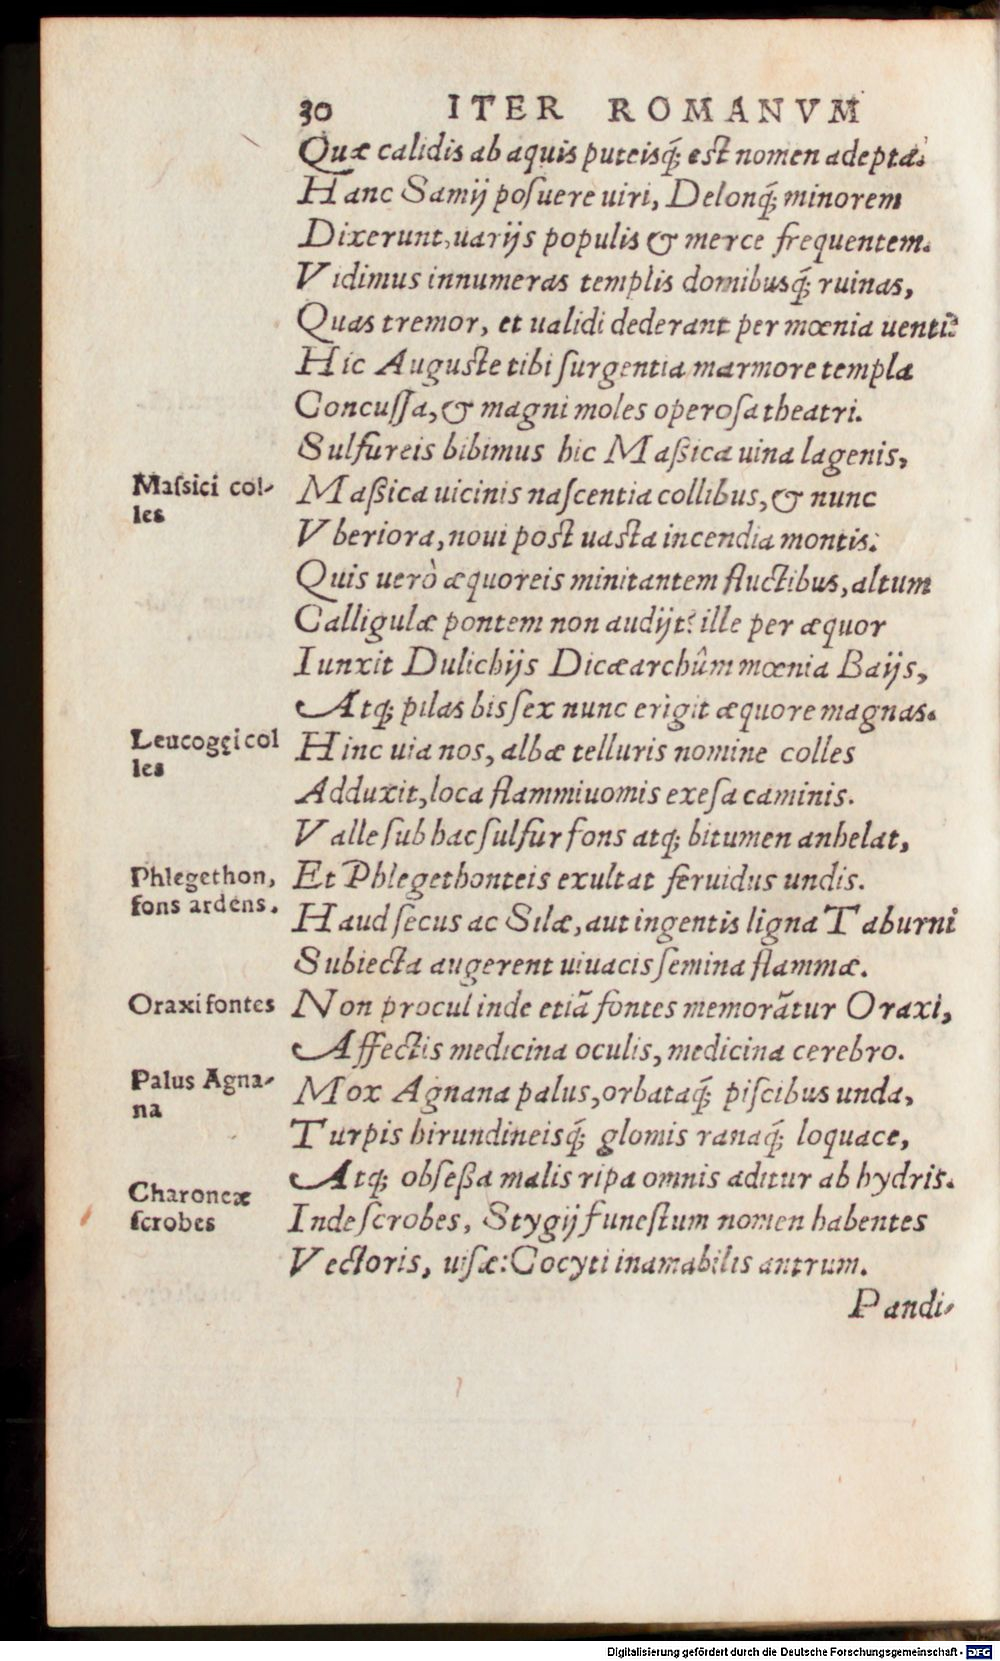 30 ITER ROMANVM
Quæ calidis ab aquis puteisq́; est nomen adepta.
Hanc Samij poſuere uiri, Delonq́; minorem
Dixerunt, uarijs populis & merce frequentem.
Vidimus innumeras templis domibusq́; ruinas,
Quas tremor, et ualidi dederant per mœnia uenti:
Hic Auguste tibi ſurgentia marmore templa
Concuſſa, & magni moles operoſa theatri.
Sulfureis bibimus hic Maßica uina lagenis,
Maſsici col-
les
Maßica uicinis naſcentia collibus, & nunc
Vberiora, noui post uasta incendia montis.
Quis uerò æquoreis minitantem fluctibus, altum
Calligulæ pontem non audijt? ille per æquor
Iunxit Dulichijs Dicæarchûm mœnia Baijs,
Atq; pilas bis ſex nunc erigit æquore magnas.
Leucogei col
les
Hinc uia nos, albæ telluris nomine colles
Adduxit, loca flammiuomis exeſa caminis.
Valle ſub hac ſulfur fons atq; bitumen anhelat,
Phlegethon,
fons ardens.
Et Phlegethonteis exultat feruidus undis.
Haud ſecus ac Silæ, aut ingentis ligna Taburni
Subiecta augerent uiuacis ſemina flammæ.
Oraxi fontes
Non procul inde etiã fontes memorãtur Oraxi,
Affectis medicina oculis, medicina cerebro.
Palus Agna-
na
Mox Agnana palus, orbataq́; piſcibus unda,
Turpis hirundineisq́; glomis ranaq́; loquace,
Atq; obſeßa malis ripa omnis aditur ab hydris.
Charoneæ
ſcrobes
Inde ſcrobes, Stygij funeſtum nomen habentes
Vectoris, uiſæ: Cocyti inamabilis antrum.
Pandi-
Digitalisierung gefördert durch die Deutsche Forschungsgemeinschaft - DFG